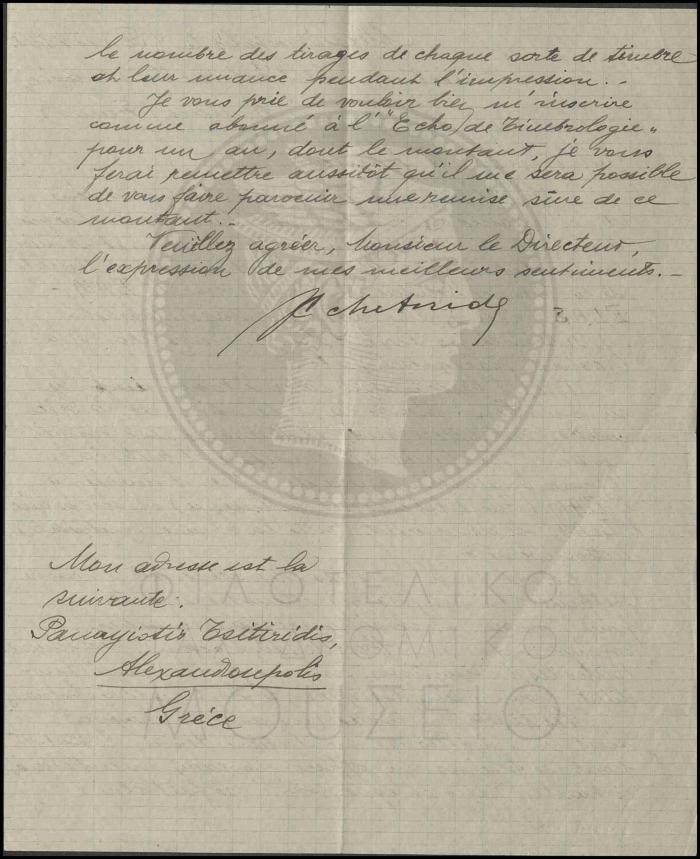 le nombre des tirages de chaque sorte de timbre
et leur nuance pendant l'impression. -
Je vous prie de vouloir bien m'inscrire
comme abonné à l' "Echo de Timbrologie"
pour un an, dont le montant, je vous
ferai remettre aussitôt qu'il me sera possible
de vous faire parvenir une remise sûre de ce
montant. -
Veuillez agréer, Monsieur le Directeur,
l'expression de mes meilleurs sentiments. -
3
Mon adresse est la
suivante:
Panayiotis Tsitiridis,
Alexandoupolis
Grèce
ΦΙΛΟΤΕΛΙΚΟ
ΜΟΥΣΕΙΟ